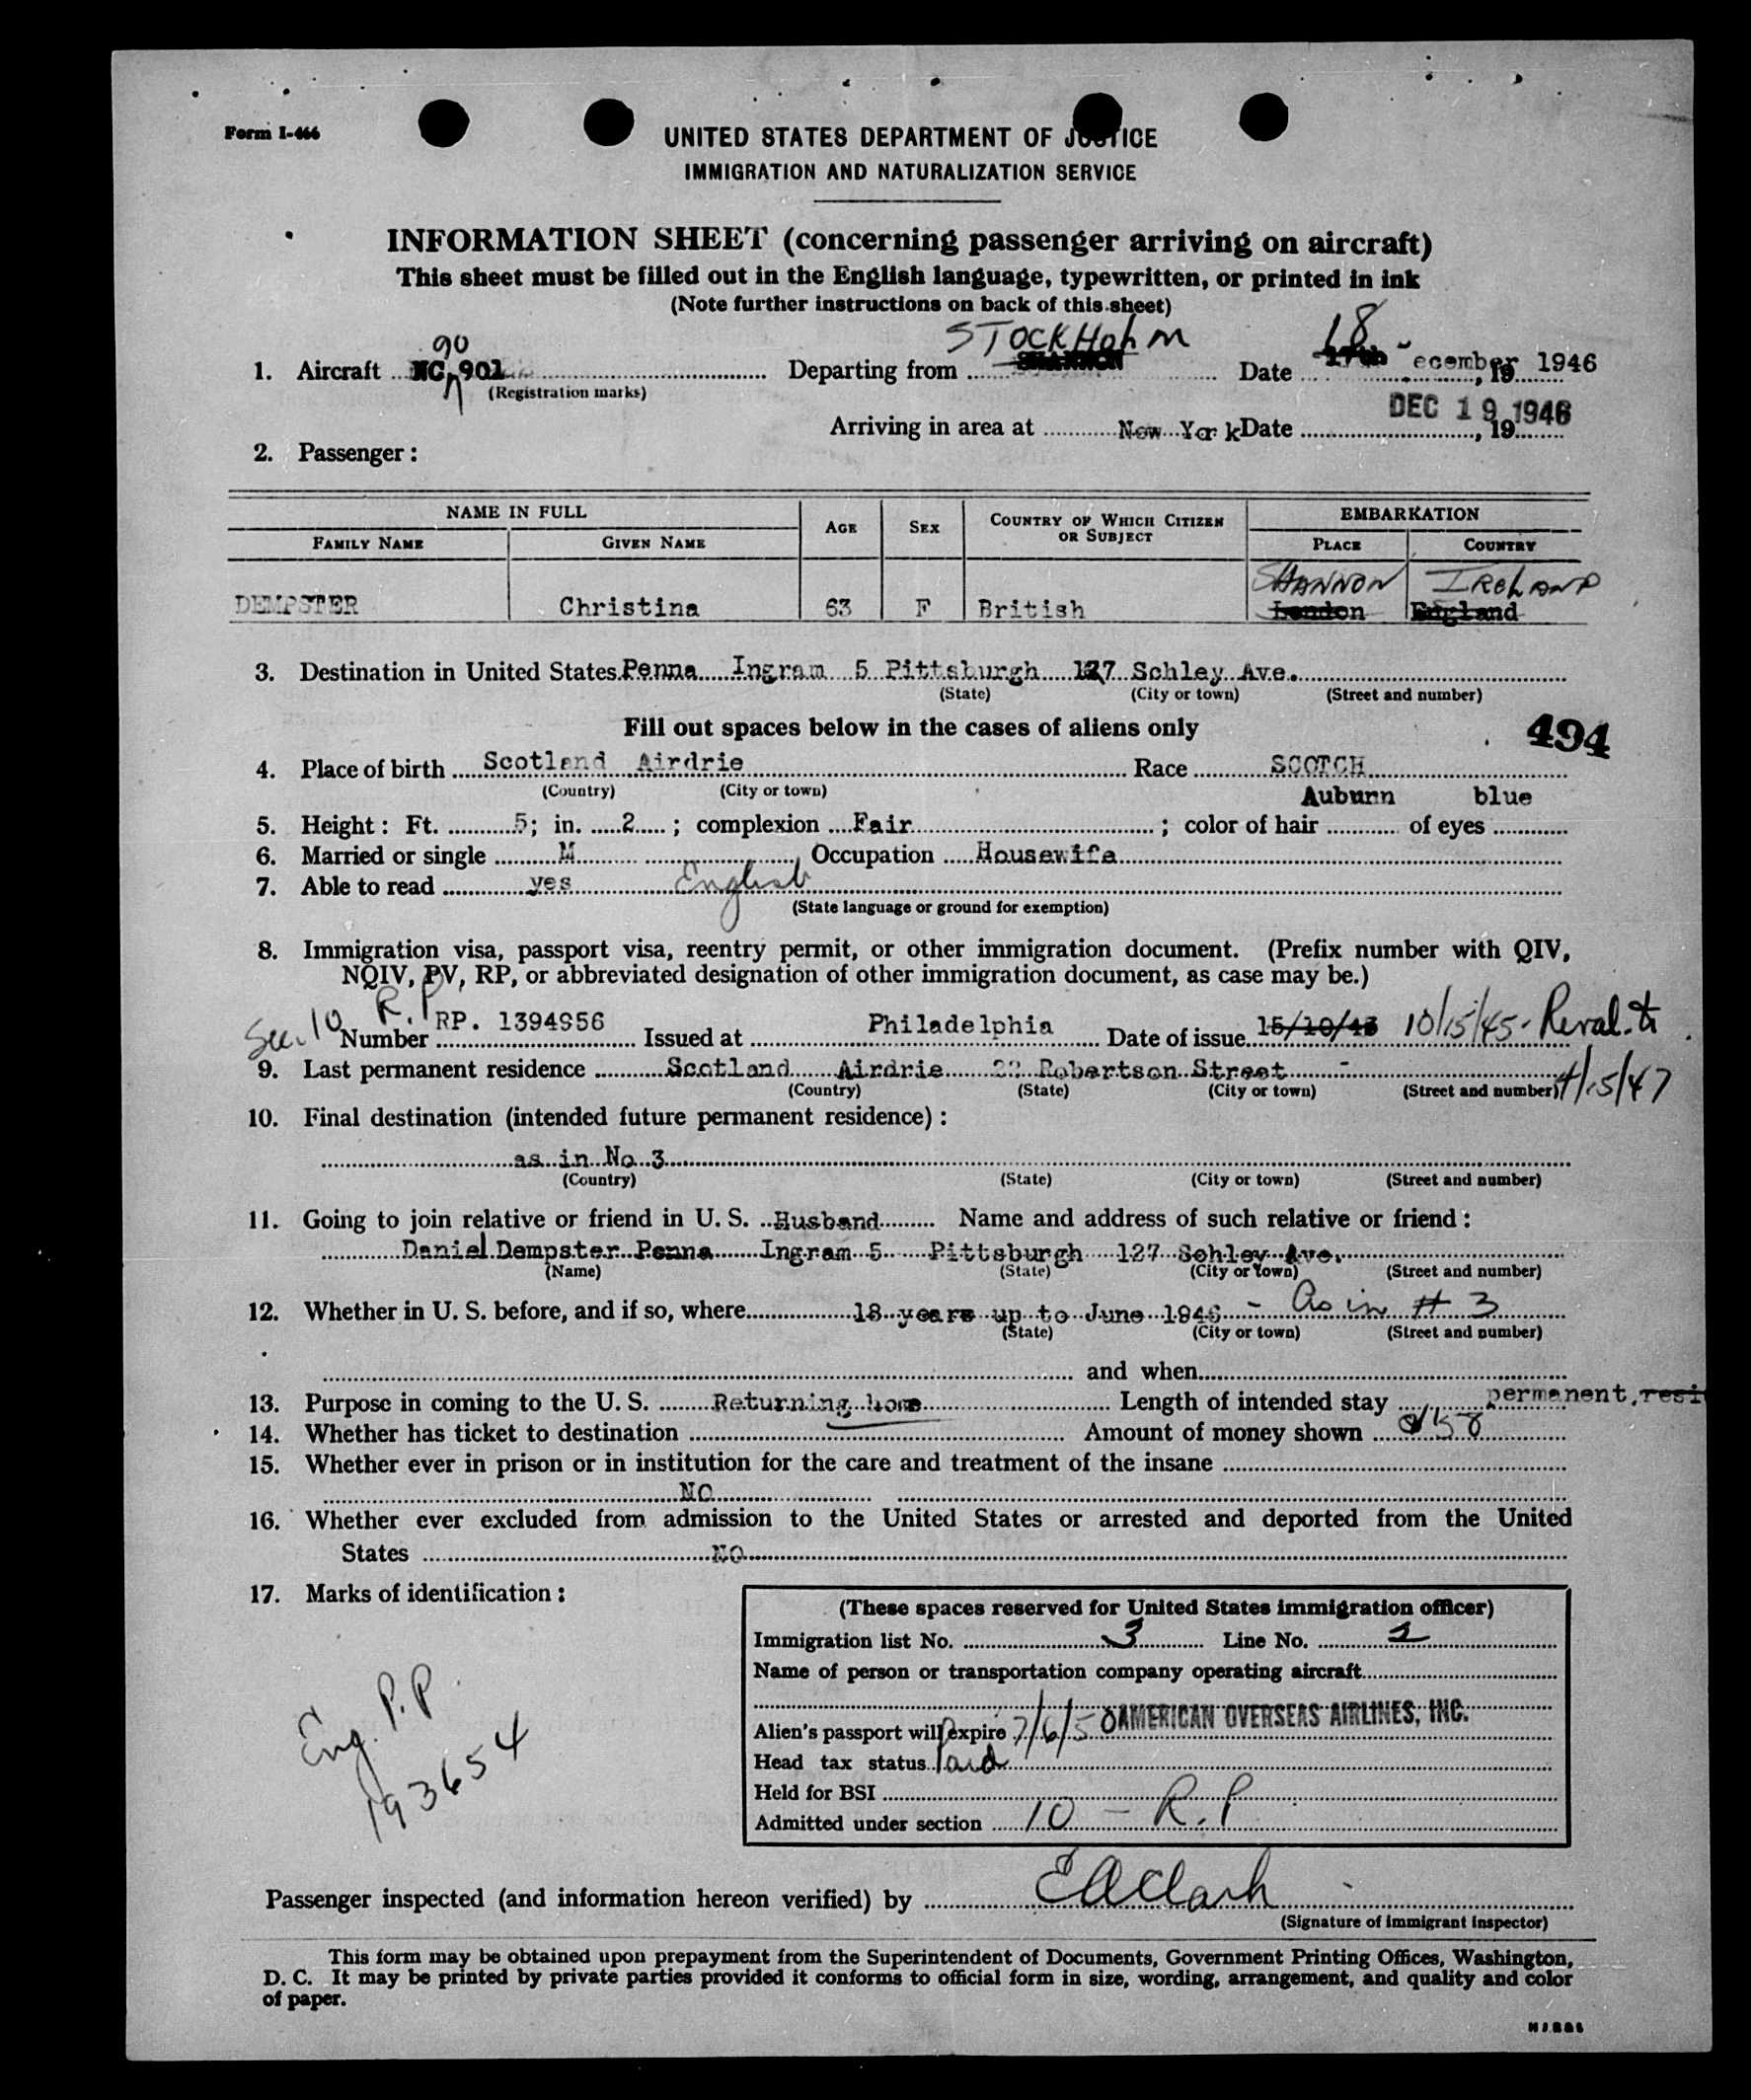 Form I-466
UNITED STATES DEPARTMENT OF JUSTICE
IMMIGRATION AND NATURALIZATION SERVICE
INFORMATION SHEET (concerning passenger arriving on aircraft)
This sheet must be filled out in the English language, typewritten, or printed in ink
(Note further instructions on back of this sheet)
90 STOCKHOLM 18
1. Aircraft NC 901 Departing from SHANNON Date 17th ecember 1946, 19
(Registration marks)
DEC 19 1946
Arriving in area at New York Date , 19
2. Passenger:
NAME IN FULL AGE SEX COUNTRY OF WHICH CITIZEN OR SUBJECT EMBARKATION
FAMILY NAME GIVEN NAME PLACE COUNTRY
SHANNON IRELAND
DEMPSTER Christina 63 F British London England
3. Destination in United States Penna Ingram 5 Pittsburgh 127 Schley Ave.
(State) (City or town) (Street and number)
Fill out spaces below in the cases of aliens only 494
4. Place of birth Scotland Airdrie Race SCOTCH
(Country) (City or town)
Auburn blue
5. Height: Ft. 5; in. 2; complexion Fair; color of hair of eyes
6. Married or single M Occupation Housewife
7. Able to read yes English
(State language or ground for exemption)
8. Immigration visa, passport visa, reentry permit, or other immigration document. (Prefix number with QIV,
NQIV, PV, RP, or abbreviated designation of other immigration document, as case may be.)
Sec. 10 R.P
Number RP. 1394956 Issued at Philadelphia Date of issue 15/10/43 10/15/45 - Reval. to
9. Last permanent residence Scotland Airdrie Robertson Street - 4/15/47
(Country) (State) (City or town) (Street and number)
10. Final destination (intended future permanent residence):
as in No 3
(Country) (State) (City or town) (Street and number)
11. Going to join relative or friend in U. S. Husband Name and address of such relative or friend:
Daniel Dempster Penna Ingram 5 Pittsburgh 127 Schley Ave.
(Name) (State) (City or town) (Street and number)
12. Whether in U. S. before, and if so, where 18 years up to June 1946 - As in # 3
(State) (City or town) (Street and number)
and when
13. Purpose in coming to the U. S. Returning home Length of intended stay permanent, resi
14. Whether has ticket to destination Amount of money shown
15. Whether ever in prison or in institution for the care and treatment of the insane
NO
16. Whether ever excluded from admission to the United States or arrested and deported from the United
States NO
17. Marks of identification:
(These spaces reserved for United States immigration officer)
Immigration list No. 3 Line No. 2
Name of person or transportation company operating aircraft
AMERICAN OVERSEAS AIRLINES, INC.
Alien's passport will expire 7/6/50
Head tax status Paid
Held for BSI
Admitted under section 10 - R.P
Eng. P.P
193654
Passenger inspected (and information hereon verified) by E A Clark
(Signature of immigrant inspector)
This form may be obtained upon prepayment from the Superintendent of Documents, Government Printing Offices, Washington,
D. C. It may be printed by private parties provided it conforms to official form in size, wording, arrangement, and quality and color
of paper.